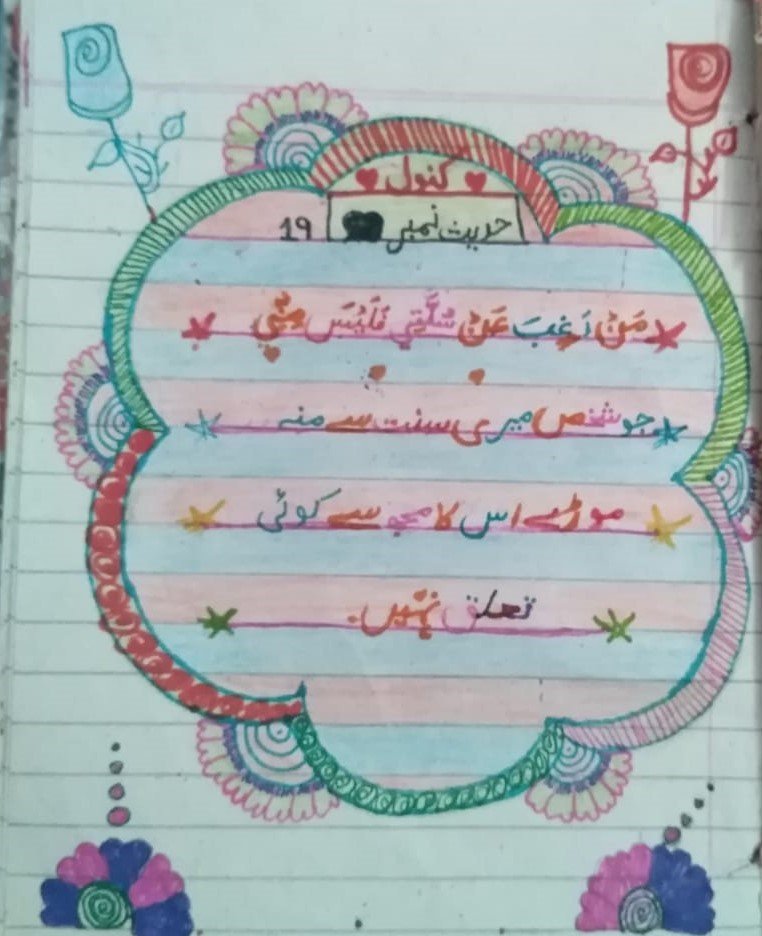 کنول
حدیث نمبر 19
مَنْ رَغِبَ عَنْ سُنَّتِي فَلَيْسَ مِنِّي
جو شخص میری سنت سے منہ
موڑے اس کا مجھ سے کوئی
تعلق نہیں۔